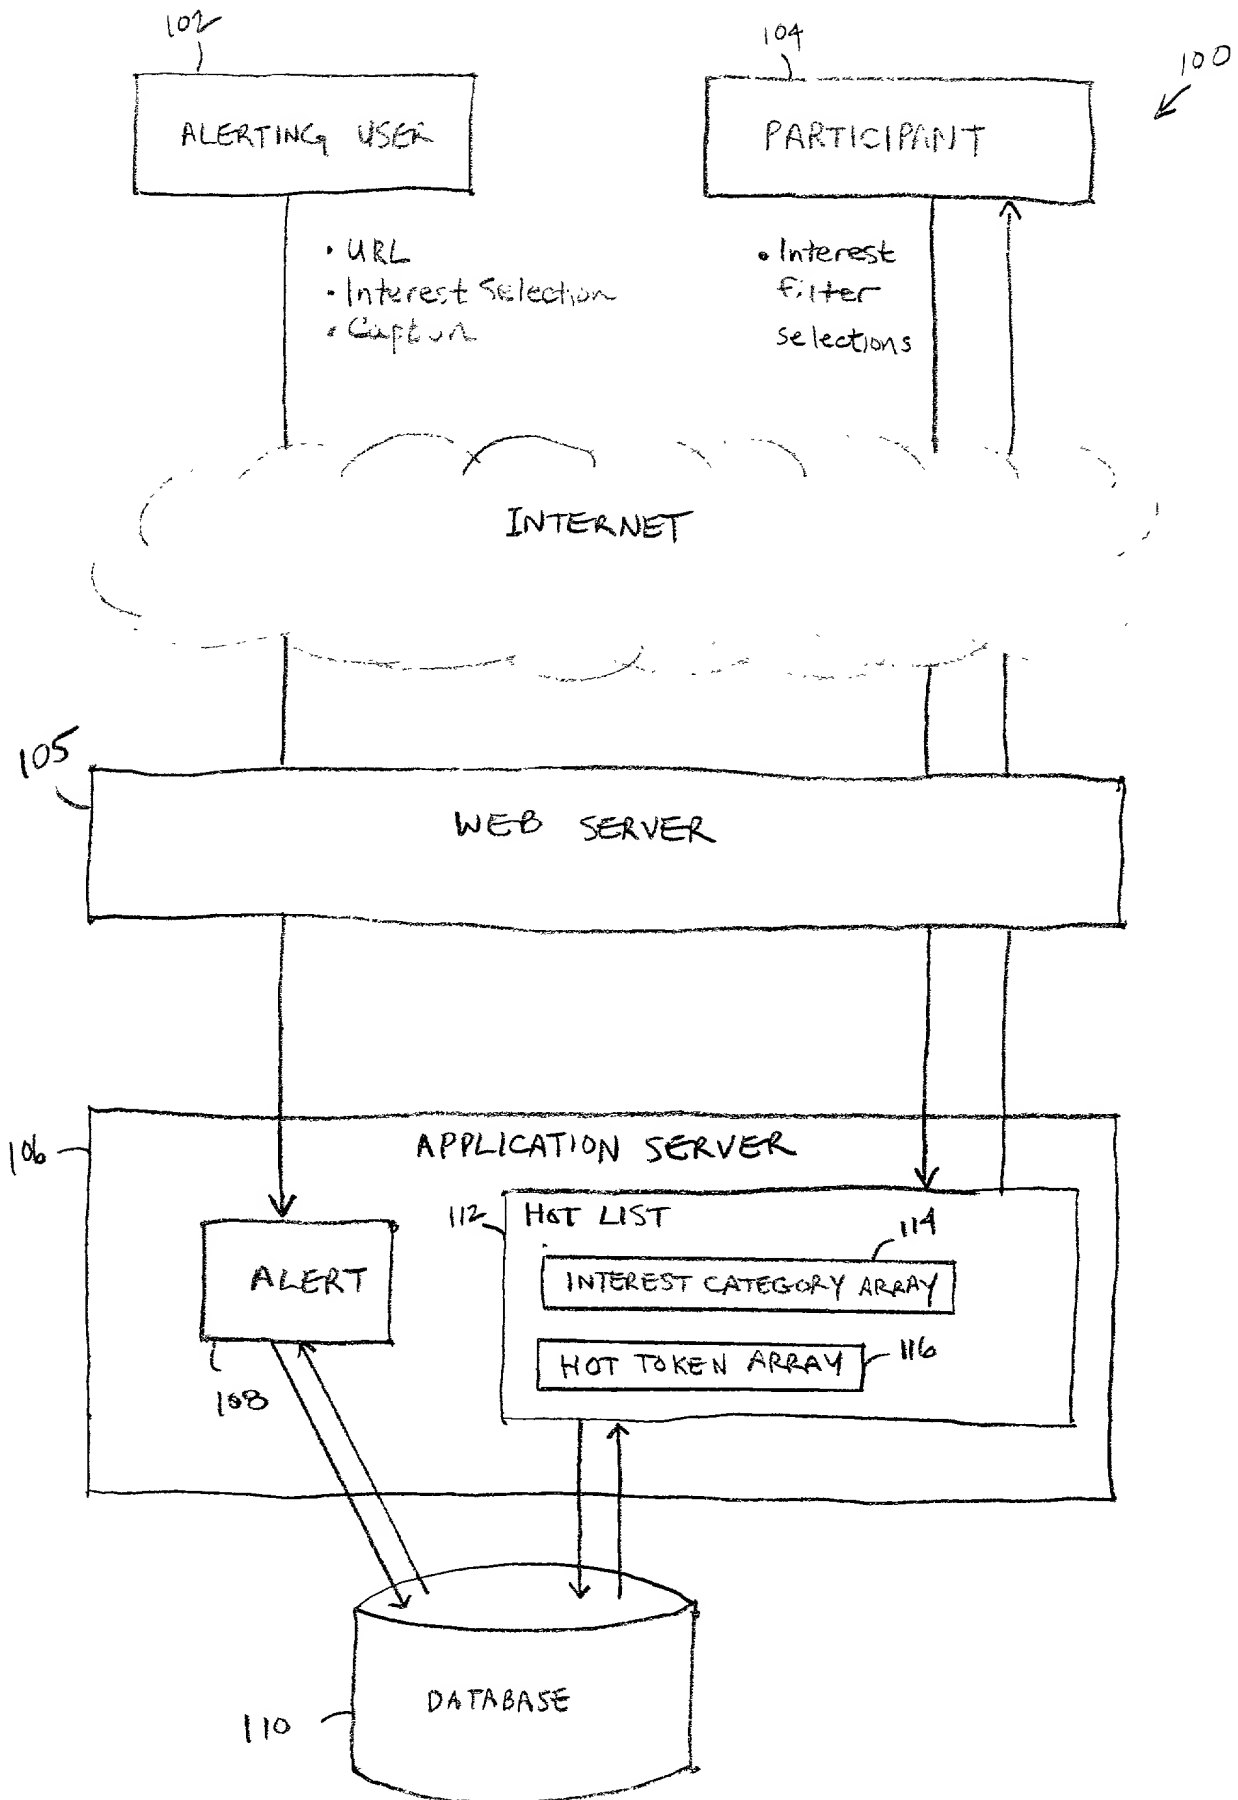 102
104
100
ALERTING USER
PARTICIPANT
• URL
• Interest Selection
• Interest
filter
selections
INTERNET
105
WEB SERVER
106
APPLICATION SERVER
112
HOT LIST
114
ALERT
INTEREST CATEGORY ARRAY
HOT TOKEN ARRAY
116
108
DATABASE
110